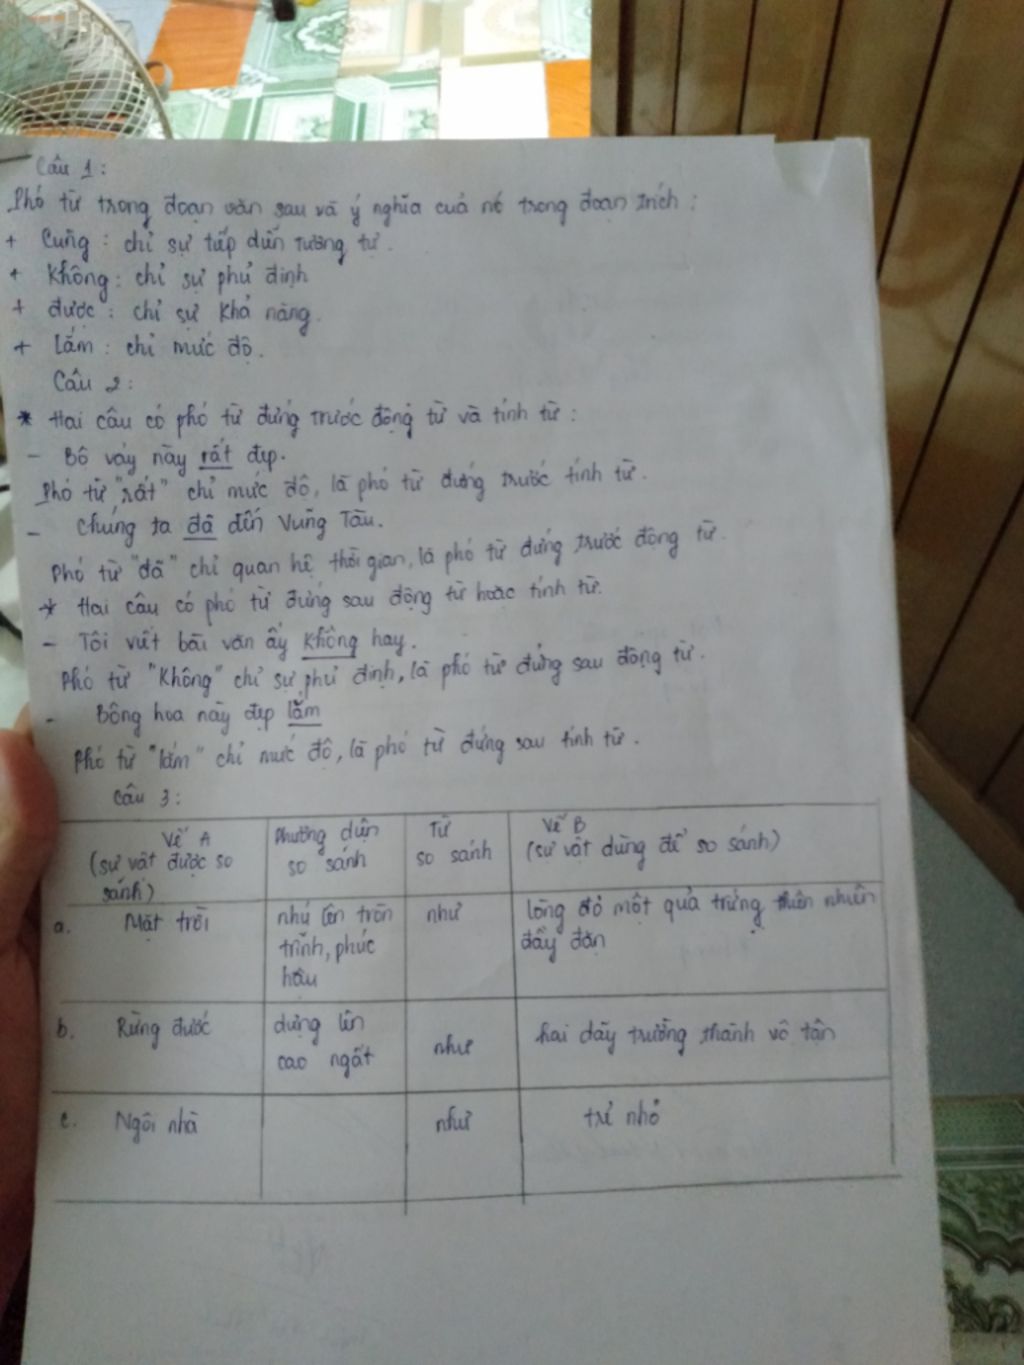 Câu 1:
Phó từ trong đoạn văn sau và ý nghĩa của nó trong đoạn trích:
+ Cũng: chỉ sự tiếp diễn tương tự.
+ Không: chỉ sự phủ định
+ được: chỉ sự khả năng.
+ lắm: chỉ mức độ.
Câu 2:
* Hai câu có phó từ đứng trước động từ và tính từ:
- Bộ váy này rất đẹp.
Phó từ "rất" chỉ mức độ, là phó từ đứng trước tính từ.
- Chúng ta đã đến Vũng Tàu.
Phó từ "đã" chỉ quan hệ thời gian, là phó từ đứng trước động từ.
* Hai câu có phó từ đứng sau động từ hoặc tính từ.
- Tôi viết bài văn ấy không hay.
Phó từ "Không" chỉ sự phủ định, là phó từ đứng sau động từ.
- Bông hoa này đẹp lắm
Phó từ "lắm" chỉ mức độ, là phó từ đứng sau tính từ.
Câu 3:
Vế A
(sự vật được so
sánh)
Phương diện
so sánh
Từ
so sánh
Vế B
(sự vật dùng để so sánh)
a. Mặt trời
nhú lên tròn
trĩnh, phúc
hậu
như
lòng đỏ một quả trứng thiên nhiên
đầy đặn
b. Rừng đước
dựng lên
cao ngất
như
hai dãy trường thành vô tận
c. Ngôi nhà
như
trẻ nhỏ